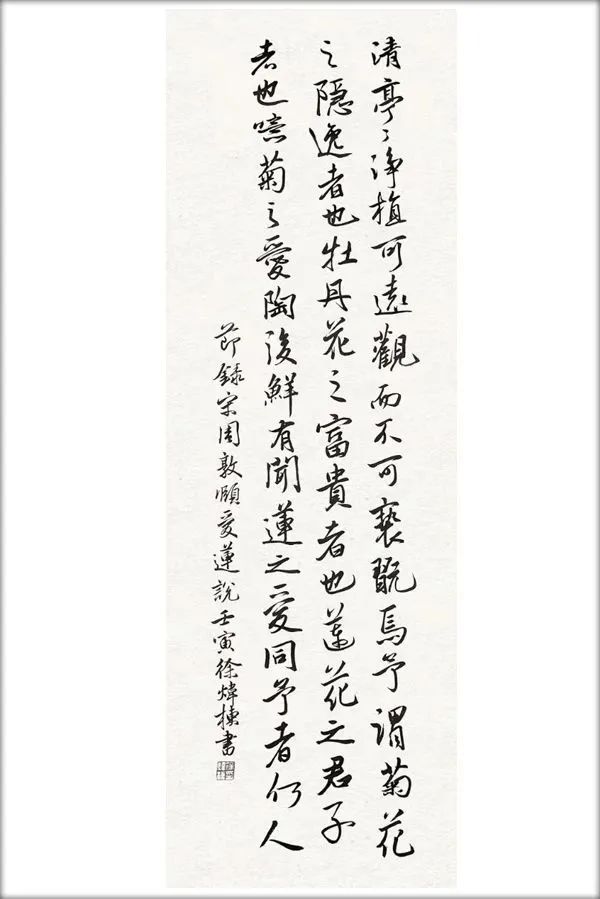 清亭〻淨植可遠觀而不可褻翫焉予謂菊花
之隱逸者也牡丹花之富貴者也蓮花之君子
者也噫菊之愛陶後鮮有聞蓮之愛同予者何人
節錄宋周敦頤愛蓮說壬寅徐煒棟書